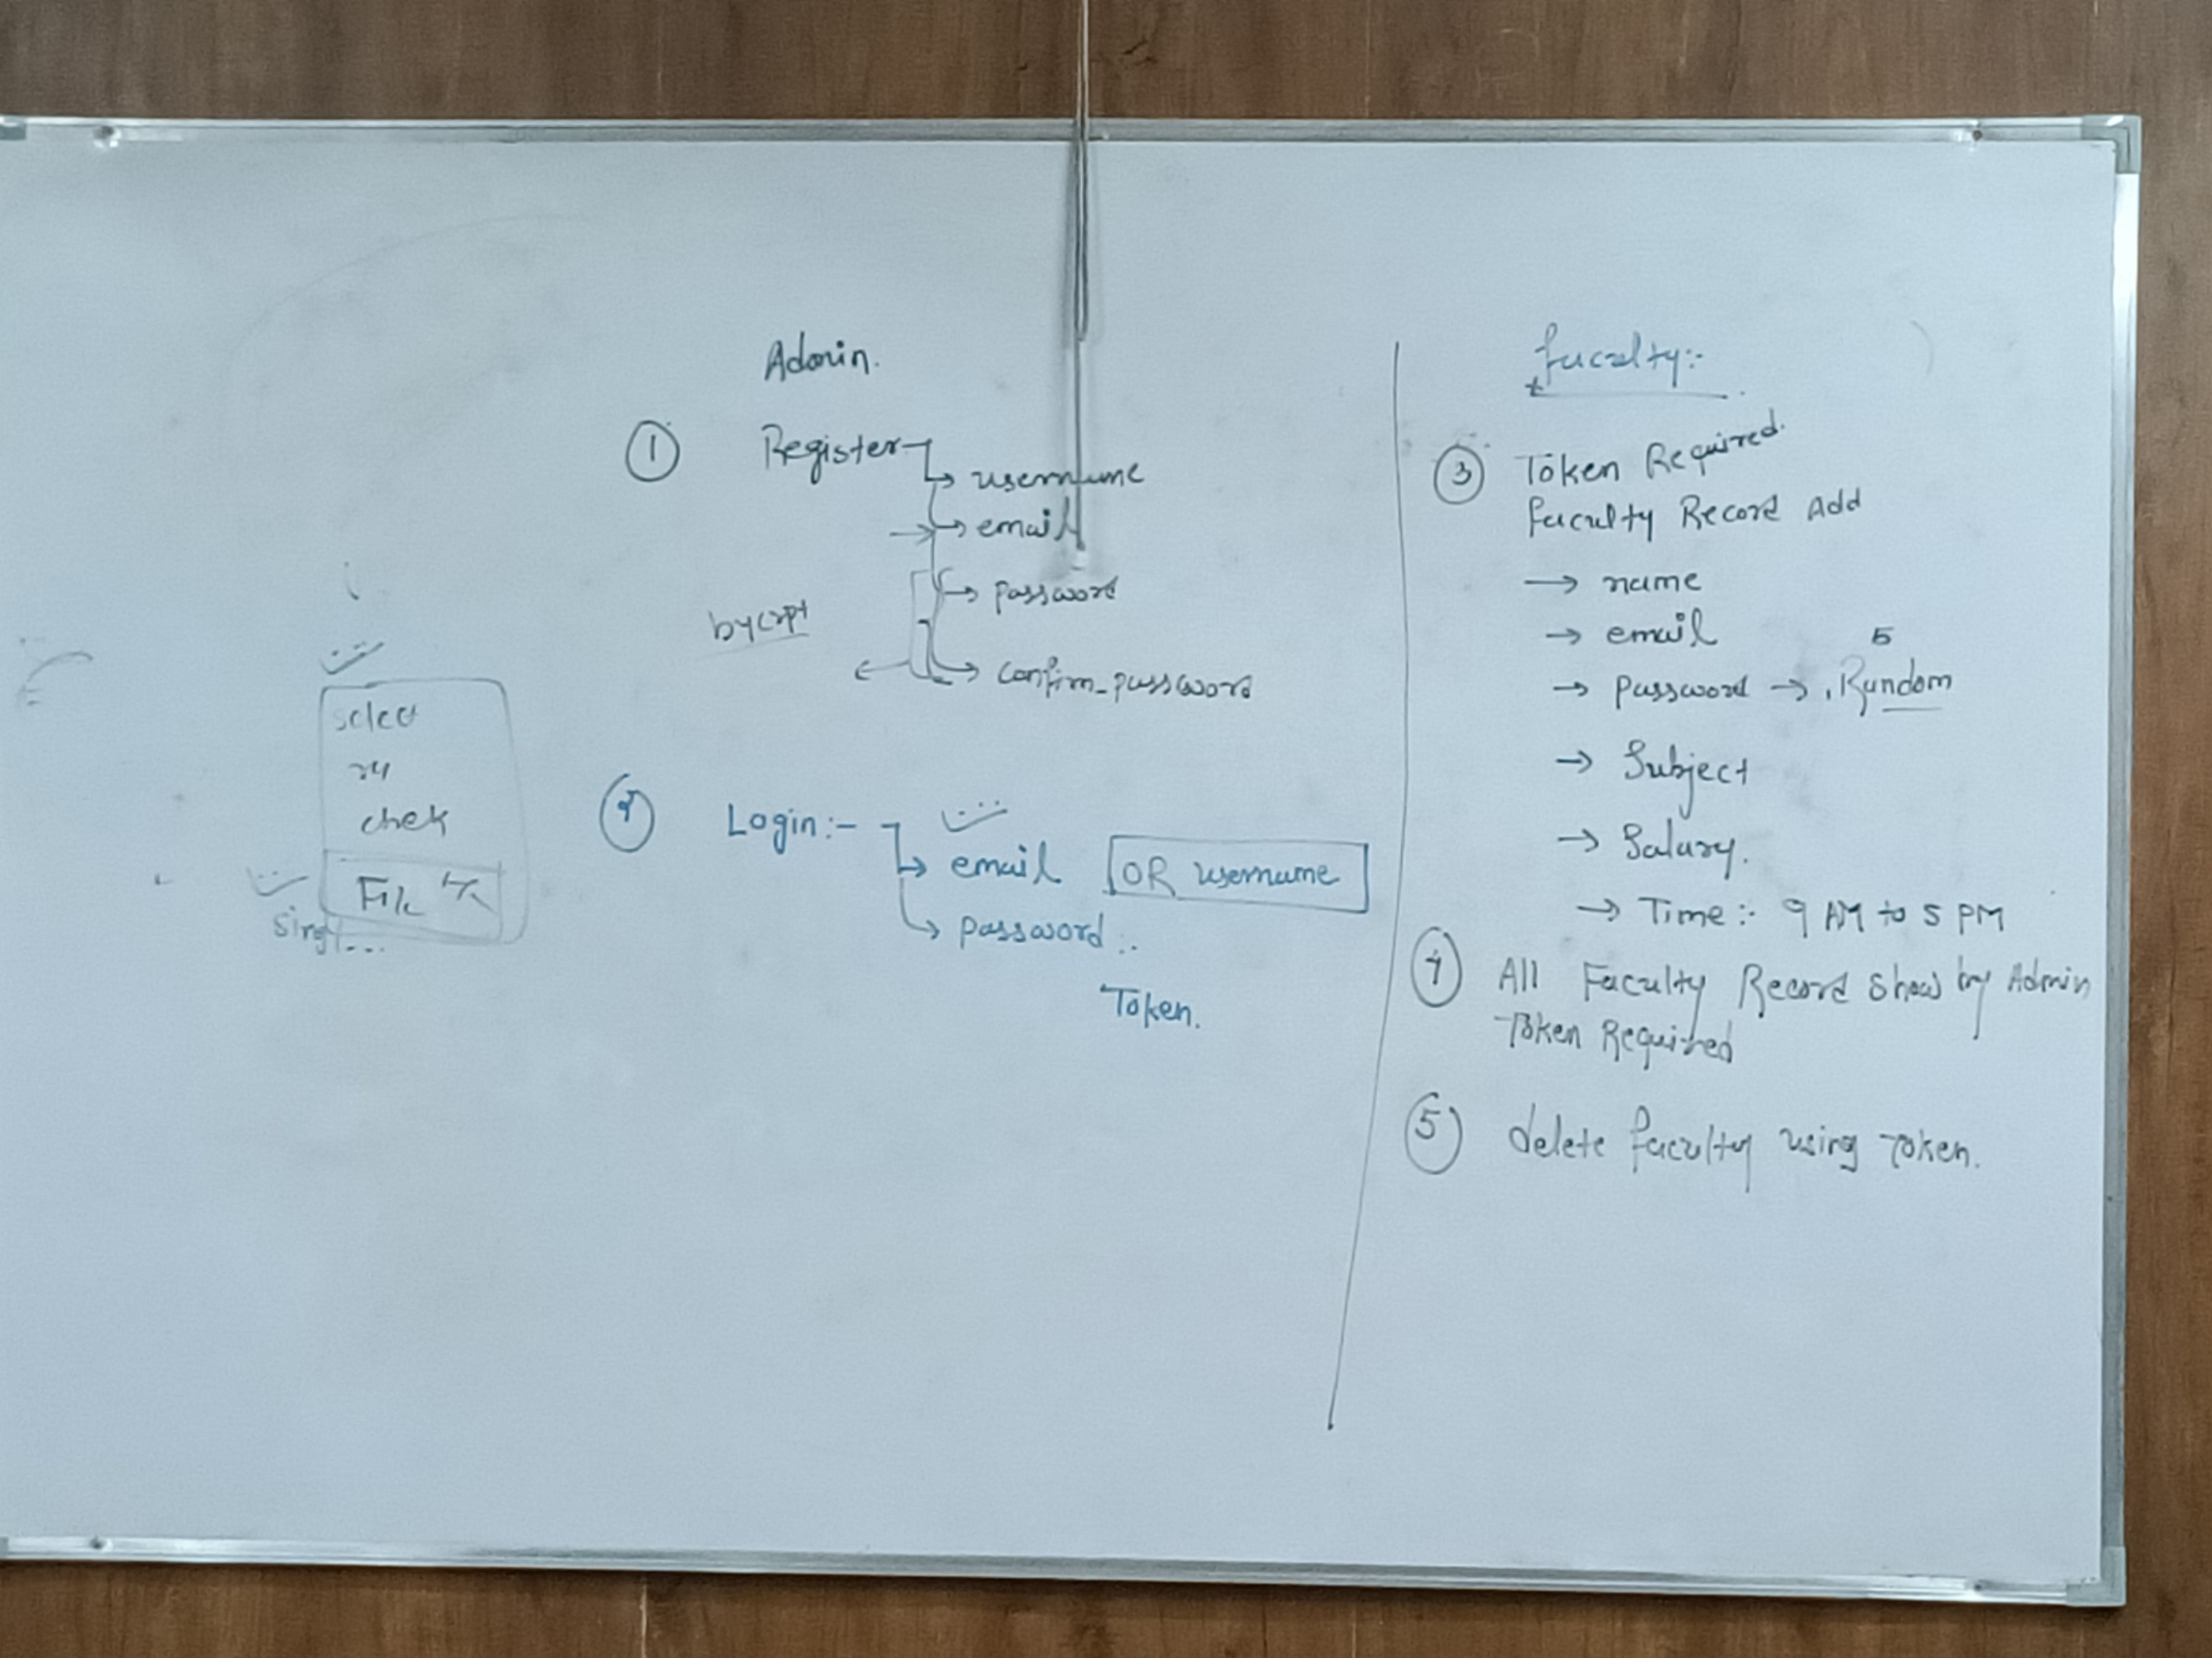 Admin.
① Register
→ username
→ email
→ password
bycrpt
→ confirm_password
select
chek
File
② Login:-
→ email OR username
→ password :.
Token.
faculty:-
③ Token Required.
faculty Record Add
→ name
→ email
5
→ password → Random
→ Subject
→ Salary.
→ Time :- 9 AM to 5 PM
④ All Faculty Record show by Admin
Token Required
⑤ delete faculty using Token.